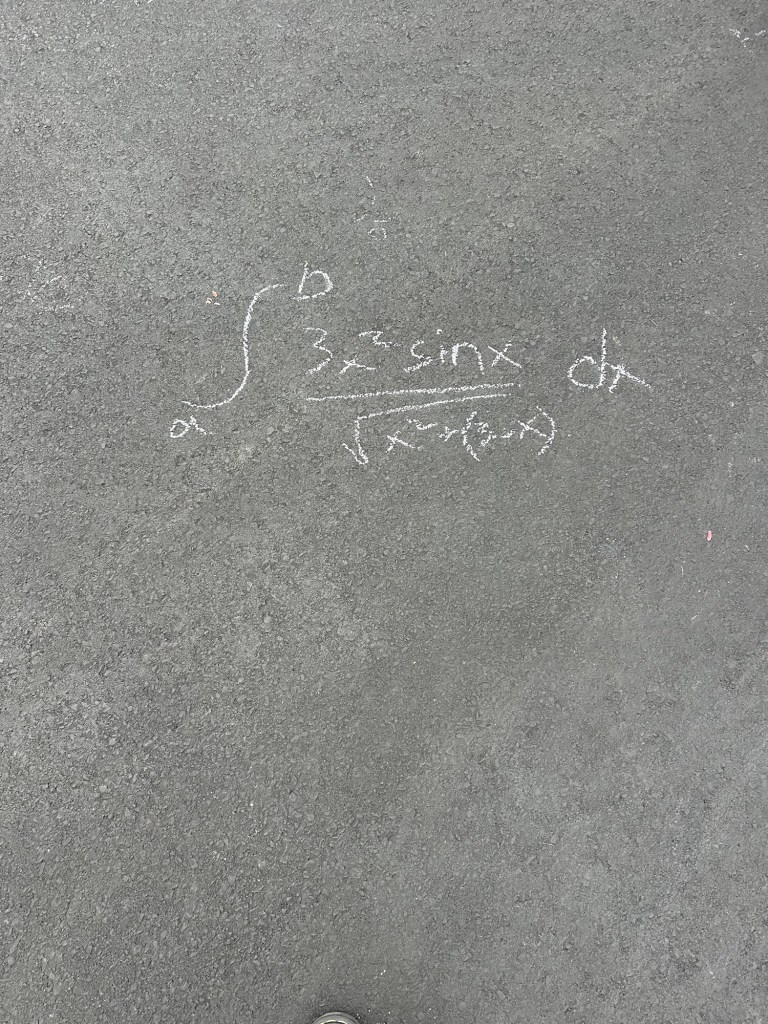 ∫ₐᵇ 3x² sinx / √x²+(3-x) dx